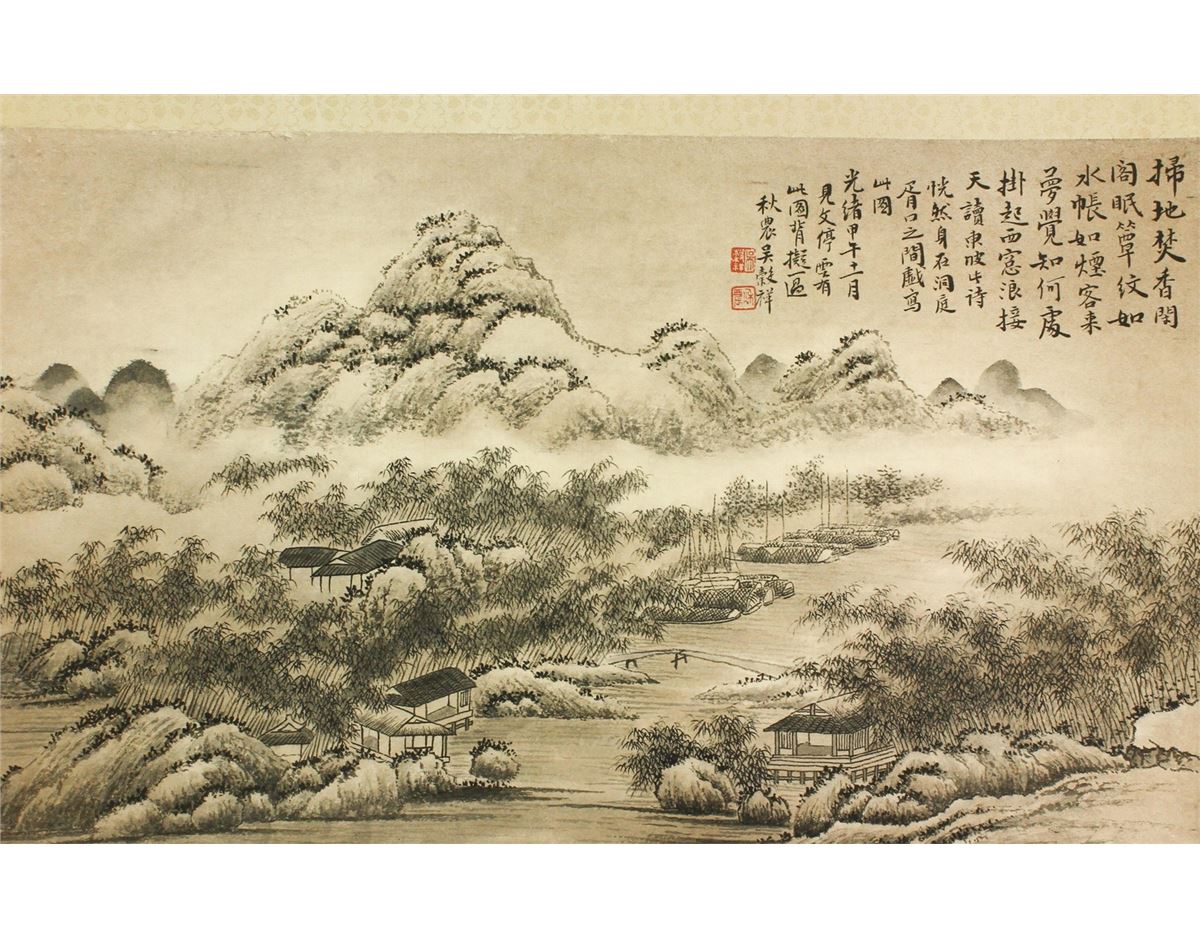 掃地焚香閉
閣眠簟紋如
水帳如煙客来
夢覺知何處
掛起西窓浪接
天讀東坡此诗
恍然身在洞庭
胥口之間戲寫
此圖
光緒甲午十一月
見文停雲有
此圖背擬一過
秋農吴穀祥